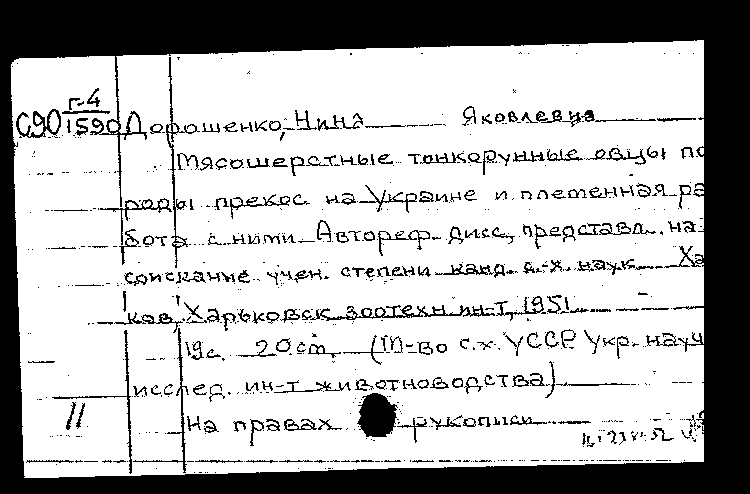 Г-4
С90 1590 Дорошенко, Нина Яковлевна
Мясошерстные тонкорунные овцы по
роды прекос на Украине и племенная ра
бота с ними Автореф. дисс, представл. на
соискание учен. степени канд. с.-х. наук Ха
ков, Харьковск зоотехн ин-т, 1951
19с. 20 см. (М-во с.х. УССР Укр. науч
исслед. ин-т животноводства)
11 На правах рукописи